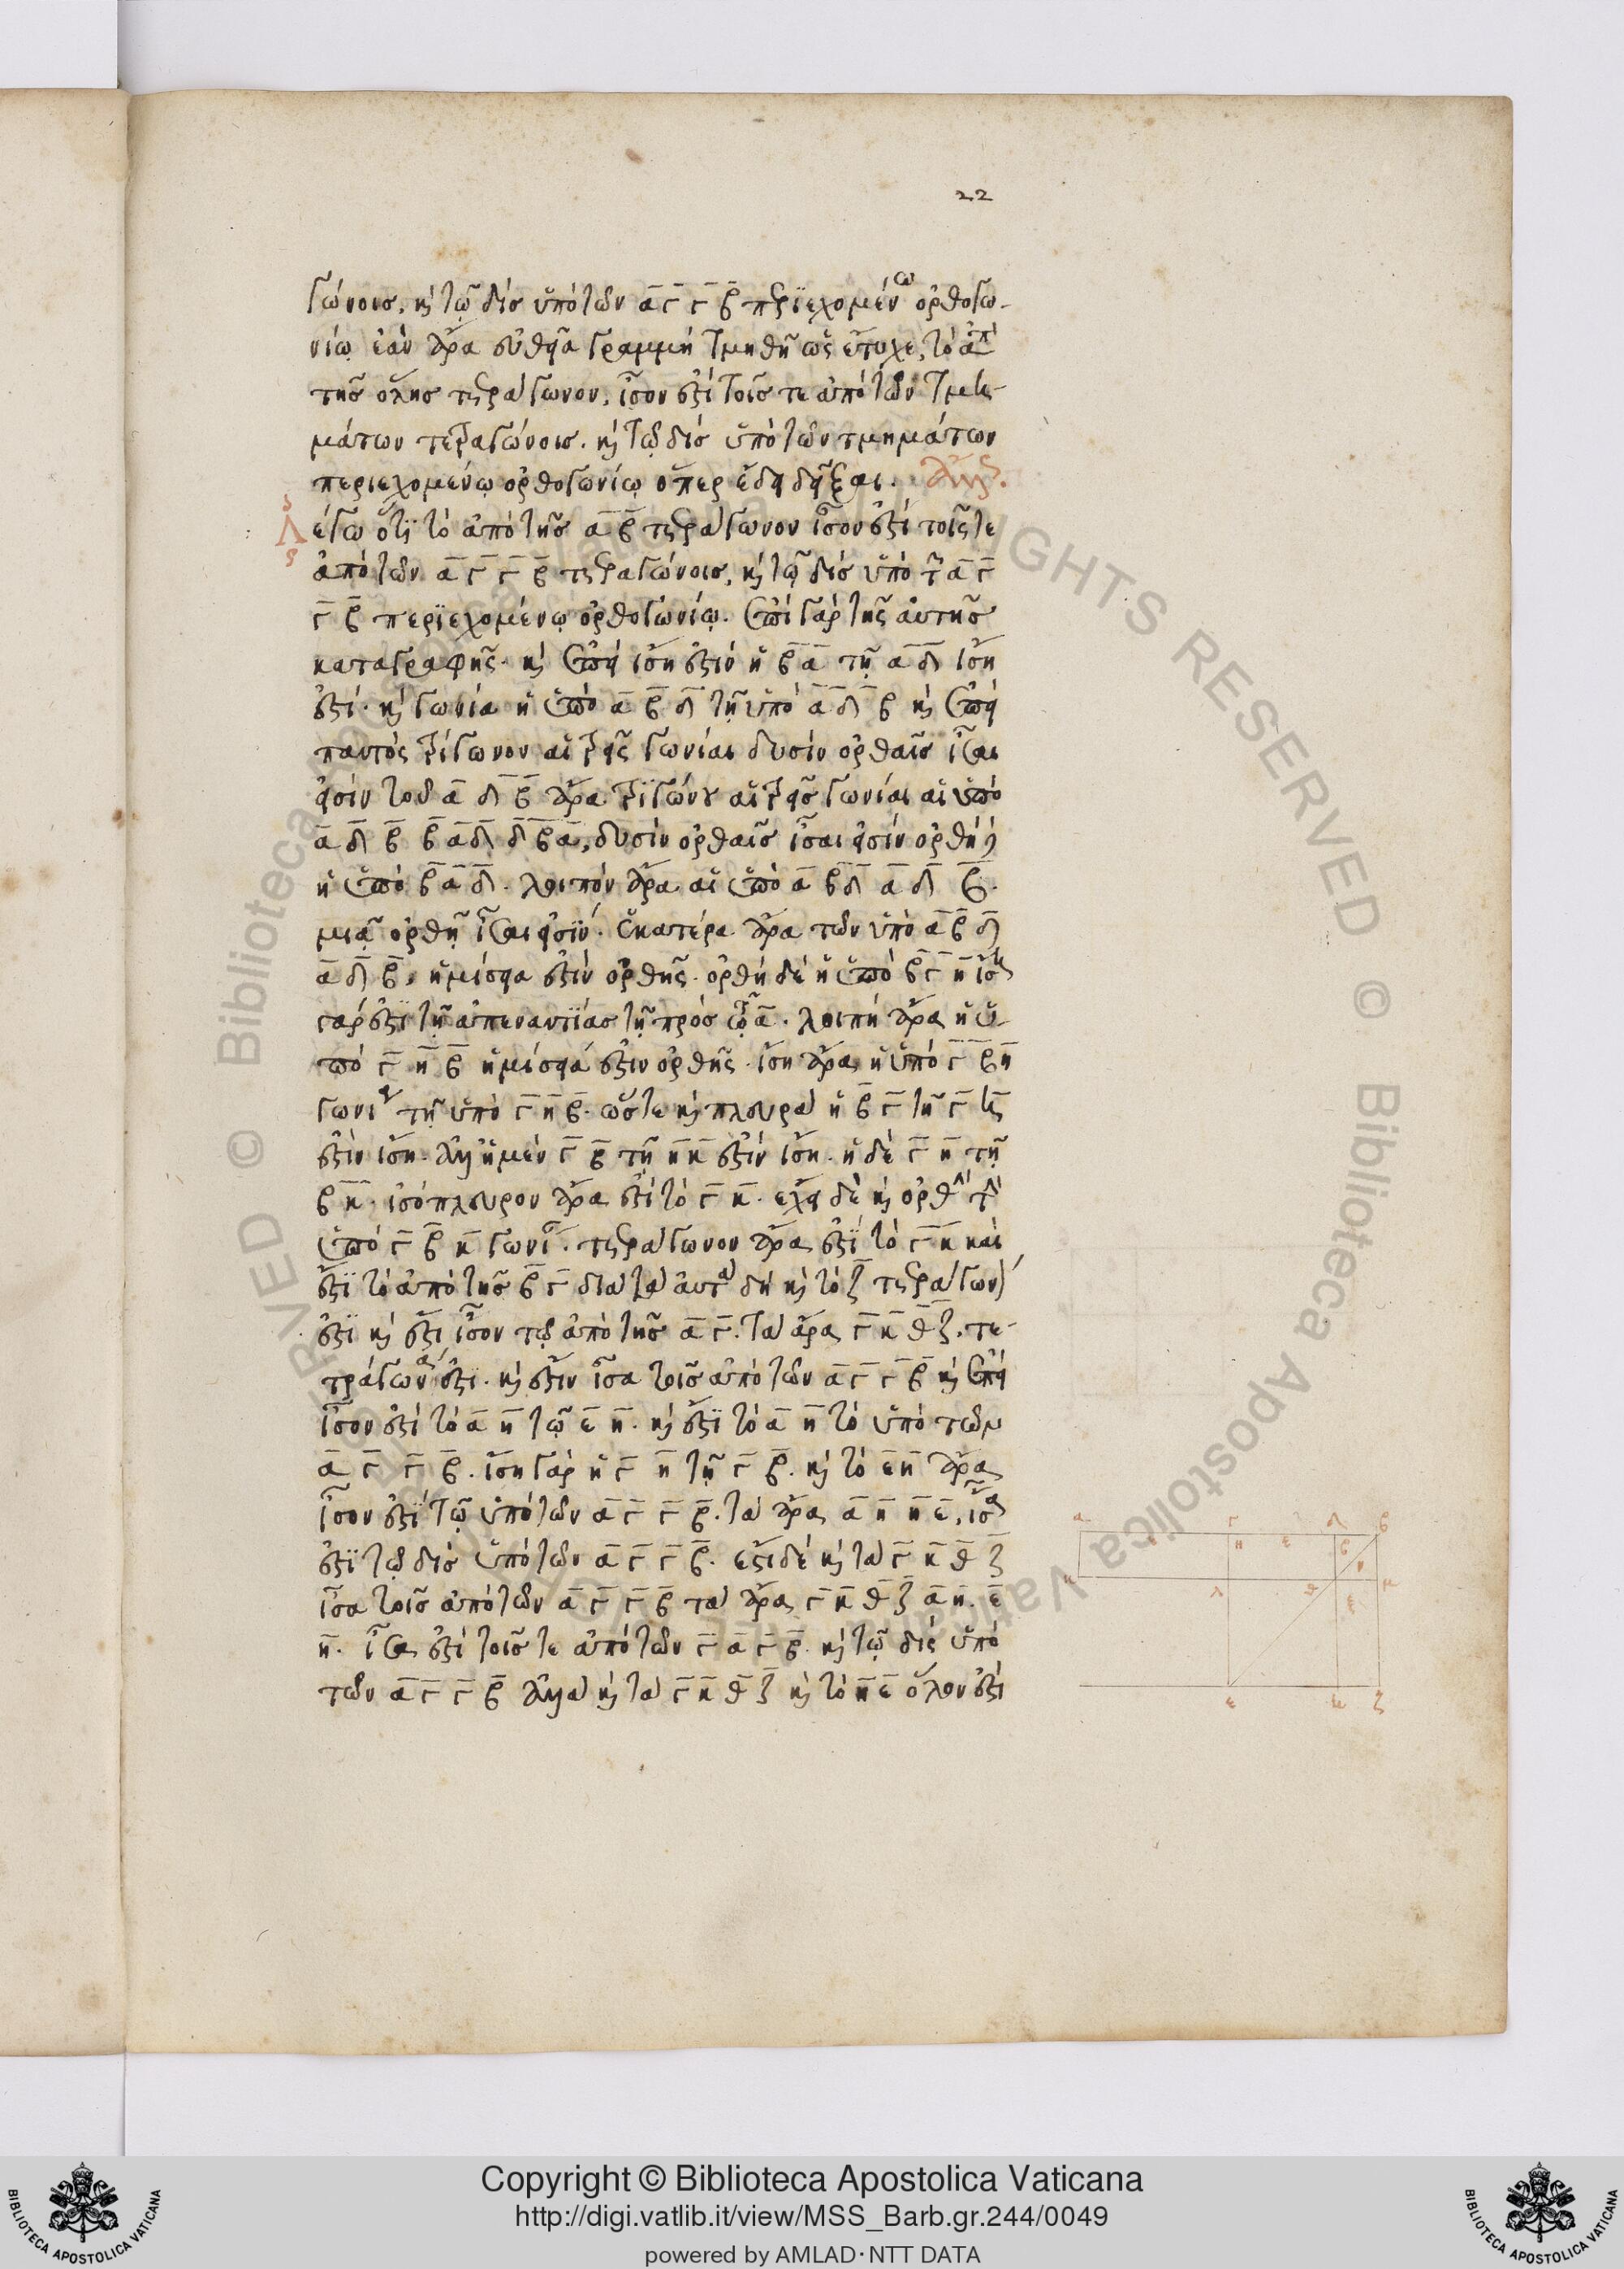 22
γώνοις, καὶ τῷ δὶς ὑπὸ τῶν α̅ γ̅ γ̅ β̅ περϊεχομένω ὀρθογω-
νίῳ ἐὰν ἄρα εὐθεῖα γραμμὴ τμηθῆ ὡς ἔτυχε, τὸ ἀπὸ
τῆς ὅλης τετράγωνον, ἴσον ἐστὶ τοῖς τε ἀπὸ τῶν τμη-
μάτων τετραγώνοις. καὶ τῷ δὶς ὑπὸ τῶν τμημάτων
περιεχομένῳ ὀρθογωνίῳ ὅπερ ἔδει δεῖξαι. ἄλλως.
Λέγω ὅτϊ τὸ ἀπὸ τῆς α̅ β̅ τετράγωνον ἴσον ἐστὶ τοῖς τε
ἀπὸ τῶν α̅ γ̅ γ̅ β̅ τετραγώνοις, καὶ τῷ δὶς ὑπὸ τῶν α̅ γ̅
γ̅ β̅ περϊεχομένῳ ὀρθογωνίῳ. ἐπὶ γὰρ τῆς αὐτῆς
καταγραφῆς. καὶ ἐπεὶ ἴση ἐστὶν ἡ β̅ α̅ τῆ α̅ δ̅ ἴση
ἐστὶ. καὶ γωνία ἡ ὑπὸ α̅ β̅ δ̅ τῆ ὑπὸ α̅ δ̅ β̅ καὶ ἐπεὶ
παντὸς τρίγωνον αἱ τρεῖς γωνίαι δυσὶν ὀρθαῖς ἴσαι
εἰσὶν τοῦ α̅ δ̅ β̅ ἄρα τρϊγώνου αἱ τρεῖς γωνίαι αἱ ὑπὸ
α̅ δ̅ β̅ β̅ α̅ δ̅ δ̅ β̅ α̅, δυσὶν ὀρθαῖς ἴσαι εἰσὶν ὀρθὴ δὲ
ἡ ὑπὸ β̅ α̅ δ̅. λοιπὸν ἄρα αἱ ὑπὸ α̅ β̅ δ̅ α̅ δ̅ β̅.
μιᾷ ὀρθῆ ἴσαι εἰσϊν. ἑκατέρα ἄρα τῶν ὑπὸ α̅ β̅ δ̅
α̅ δ̅ β̅, ἡμίσεια ἐστὶν ὀρθῆς. ὀρθὴ δὲ ἡ ὑπὸ β̅ γ̅ η̅ ἴση
γὰρ ἐστϊ τῆ ἀπεναντίας τῆ πρὸς τῷ α̅. λοιπὴ ἄρα ἡ ὑ-
πὸ γ̅ η̅ β̅ ἡμίσειά ἐστιν ὀρθῆς. ἴση ἄρα ἡ ὑπὸ γ̅ β̅ η̅
γωνία τῆ ὑπὸ γ̅ η̅ β̅. ὥστε καὶ πλευρὰ ἡ β̅ γ̅ τῆ γ̅ η̅
ἐστὶν ἴση. ἀλλ' ἡ μὲν γ̅ β̅ τῆ η̅ κ̅ ἐστὶν ἴση. ἡ δὲ γ̅ η̅ τῆ
β̅ κ̅. ἰσόπλευρον ἄρα ἐστὶ τὸ γ̅ κ̅. ἔχει δὲ καὶ ὀρθὴν τὴν
ὑπὸ γ̅ β̅ κ̅ γωνίαν. τετράγωνον ἄρα ἐστϊ τὸ γ̅ κ̅ καὶ
ἔστϊ τὸ ἀπὸ τῆς β̅ γ̅ διὰ τὰ αὐτὰ δὴ καὶ τὸ ζ̅ τετράγωνόν
ἐστϊ καὶ ἔστι ἴσον τῷ ἀπὸ τῆς α̅ γ̅. τὰ ἄρα γ̅ κ̅ θ̅ ζ̅. τε-
τράγωνά ἐστϊ. καὶ ἔστιν ἴσα τοῖς ἀπὸ τῶν α̅ γ̅ γ̅ β̅ καὶ ἐπεὶ
ἴσον ἐστὶ τὸ α̅ η̅ τῷ ε̅ η̅. καὶ ἔστϊ τὸ α̅ η̅ τὸ ὑπὸ τῶν
α̅ γ̅ γ̅ β̅. ἴση γὰρ ἡ γ̅ η̅ τῆ γ̅ β̅. καὶ τὸ ε̅ η̅ ἄρα
ἴσον ἐστϊ τῷ ὑπὸ τῶν α̅ γ̅ γ̅ β̅. τὰ ἄρα α̅ η̅ η̅ ε̅, ἴσα
ἐστϊ τῷ δὶς ὑπὸ τῶν α̅ γ̅ γ̅ β̅. ἔστι δὲ καὶ τὰ γ̅ κ̅ θ̅ ζ̅
ἴσα τοῖς ἀπὸ τῶν α̅ γ̅ γ̅ β̅ τὰ ἄρα γ̅ κ̅ θ̅ ζ̅ α̅ η̅. ε̅
η̅. ἴσα ἐστὶ τοῖς τε ἀπὸ τῶν γ̅ α̅ γ̅ β̅. καὶ τῷ δὶς ὑπὸ
τῶν α̅ γ̅ γ̅ β̅ ἀλλὰ καὶ τὰ γ̅ κ̅ θ̅ ζ̅ καὶ τὸ η̅ ε̅ ὅλον ἐστὶ
α γ δ β
κ λ θ μ
ε η ζ
© Biblioteca Apostolica Vaticana
ALL RIGHTS RESERVED
Copyright © Biblioteca Apostolica Vaticana
http://digi.vatlib.it/view/MSS_Barb.gr.244/0049
powered by AMLAD·NTT DATA
BIBLIOTECA APOSTOLICA VATICANA
BIBLIOTECA APOSTOLICA VATICANA